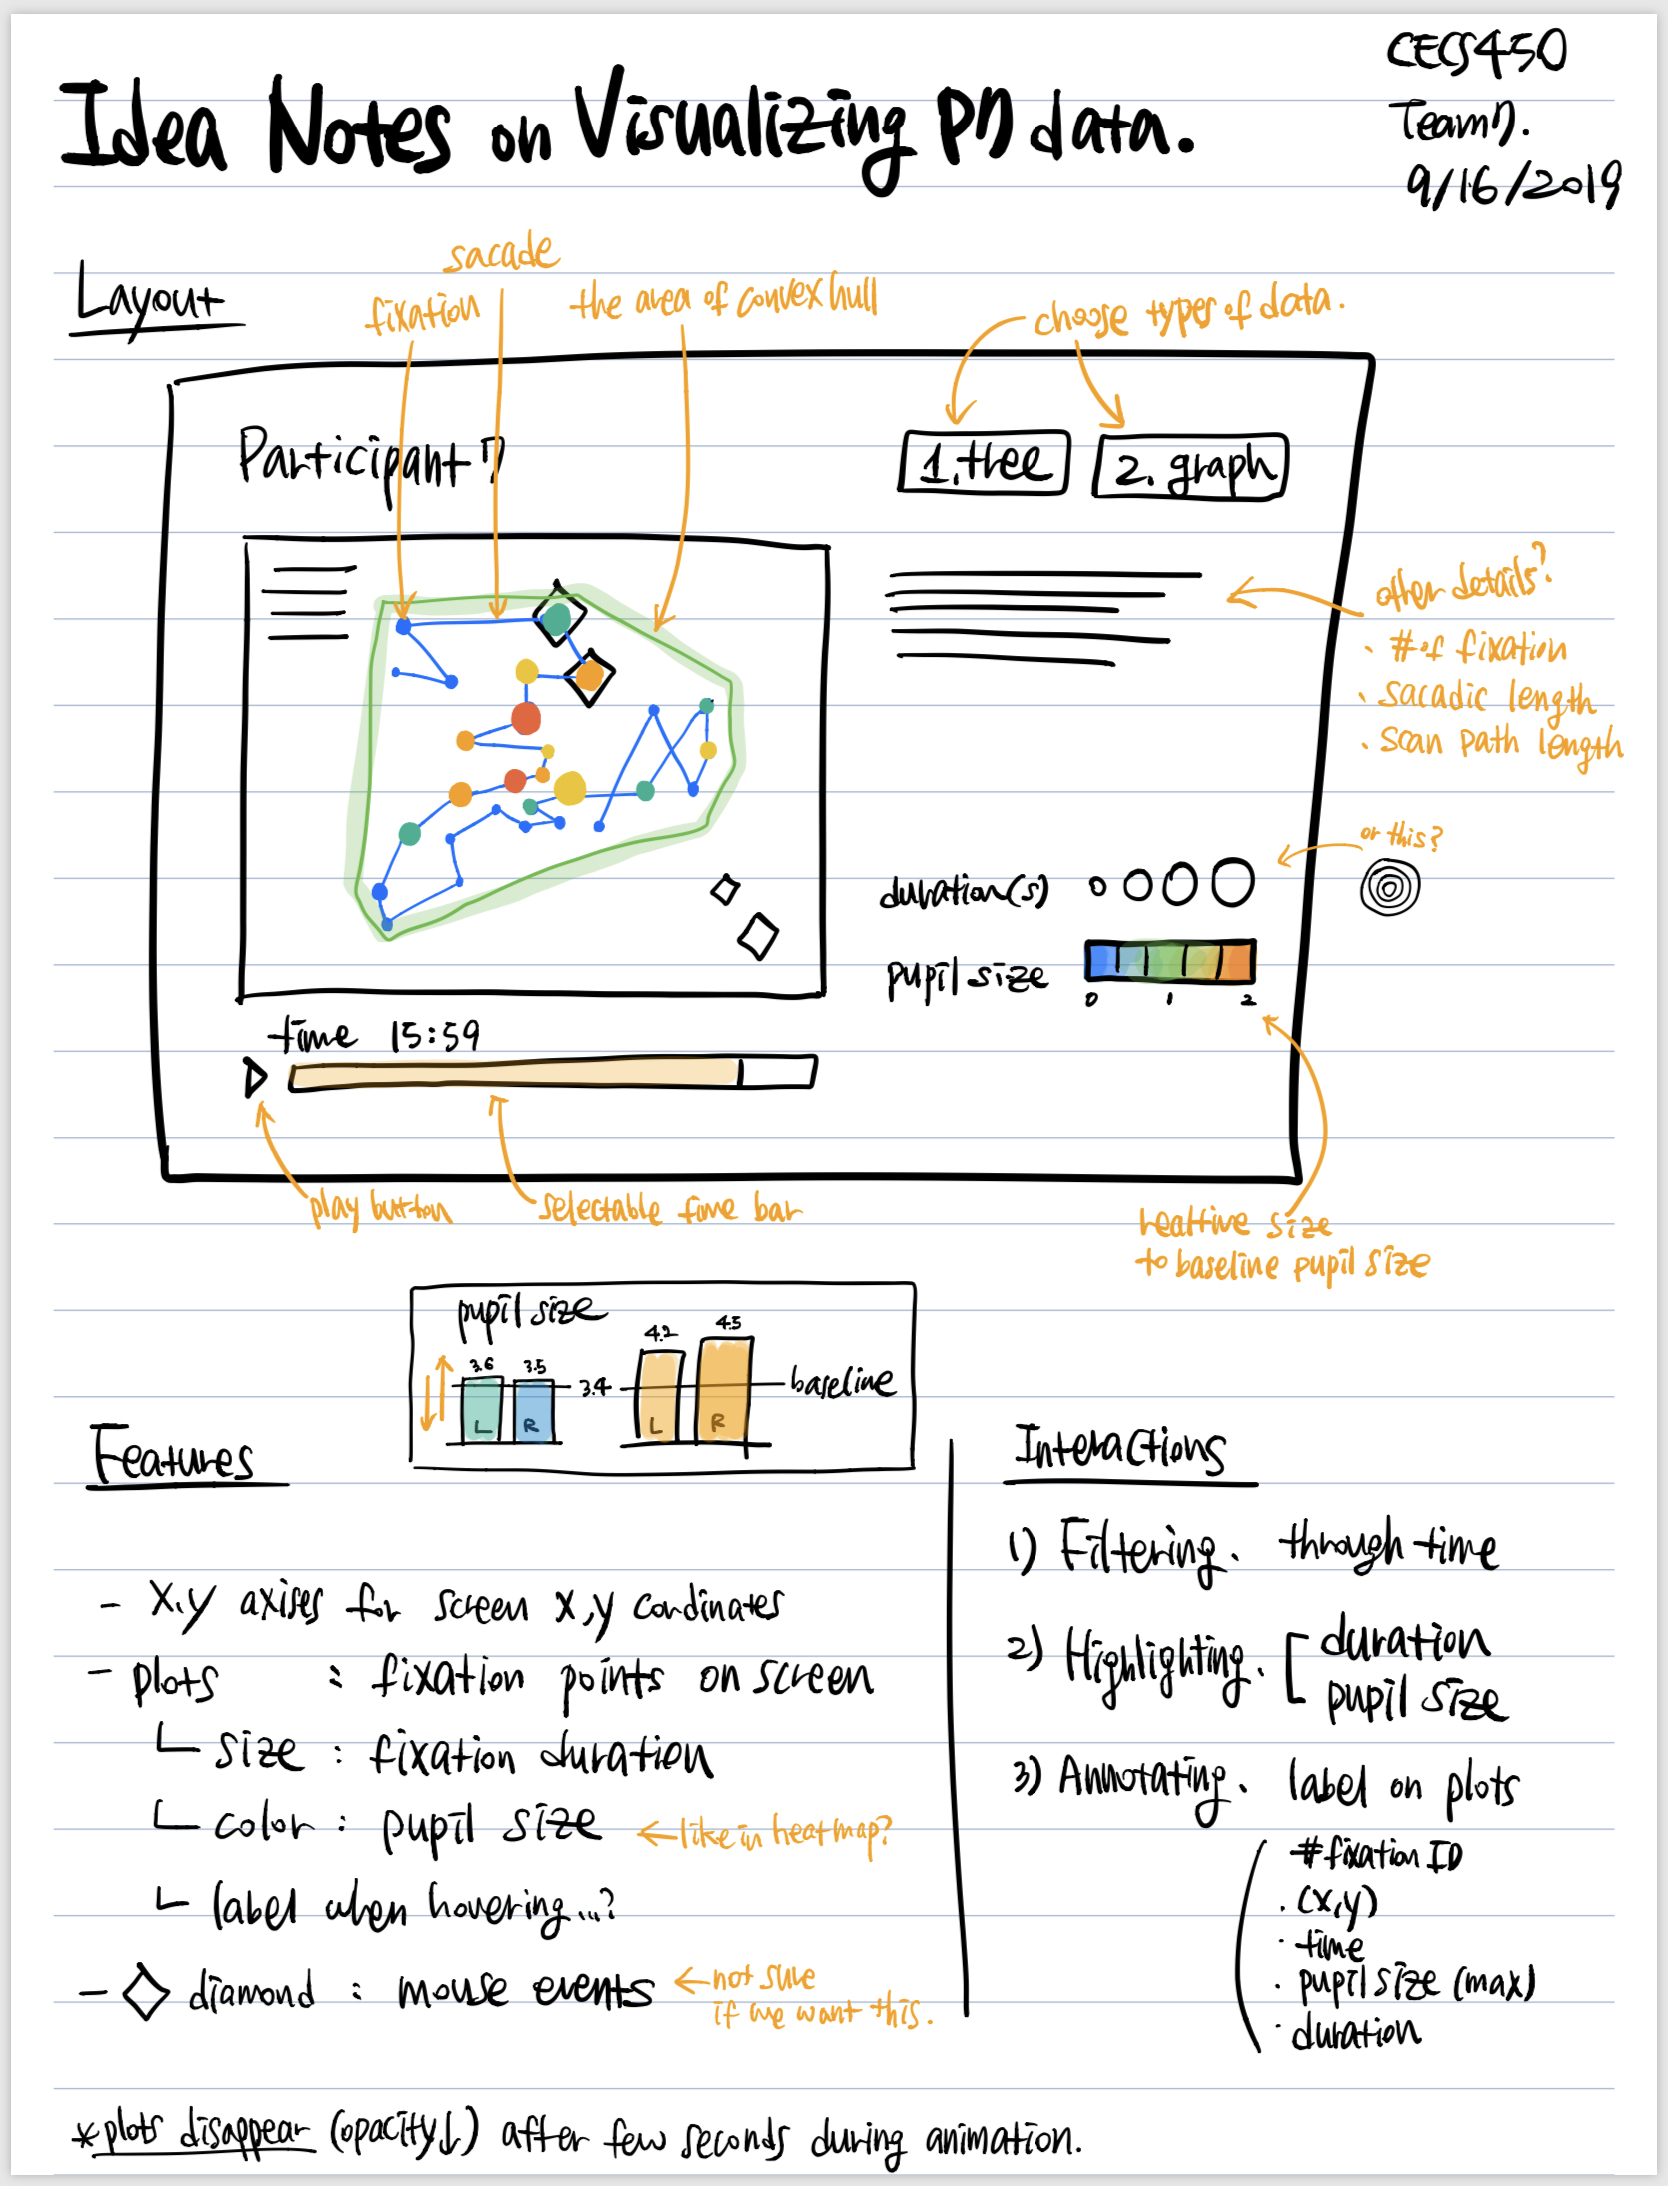 Idea Notes on Visualizing p7 data.
CECS450
Team7.
9/16/2019
Layout
sacade
fixation
the area of convexhull
choose types of data.
Participant 7
1. tree
2. graph
other details?
· # of fixation
· sacadic length
· scan path length
or this?
duration(s)
pupil size
0 1 2
time 15:59
play button
selectable time bar
realtive size
to baseline pupil size
pupil size
3.6 3.5
4.2 4.5
3.4
baseline
L R
L R
Features
- X,y axises for screen X,y cordinates
- plots : fixation points on screen
size : fixation duration
color : pupil size
←like in heatmap?
label when hovering...?
- ◇ diamond : mouse events
←not sure
if we want this.
Interactions
1) Filtering. through time
2) Highlighting. [ duration
pupil size
3) Annotating. label on plots
#fixation ID
· (x,y)
· time
· pupil size (max)
· duration
*plots disappear (opacity↓) after few seconds during animation.